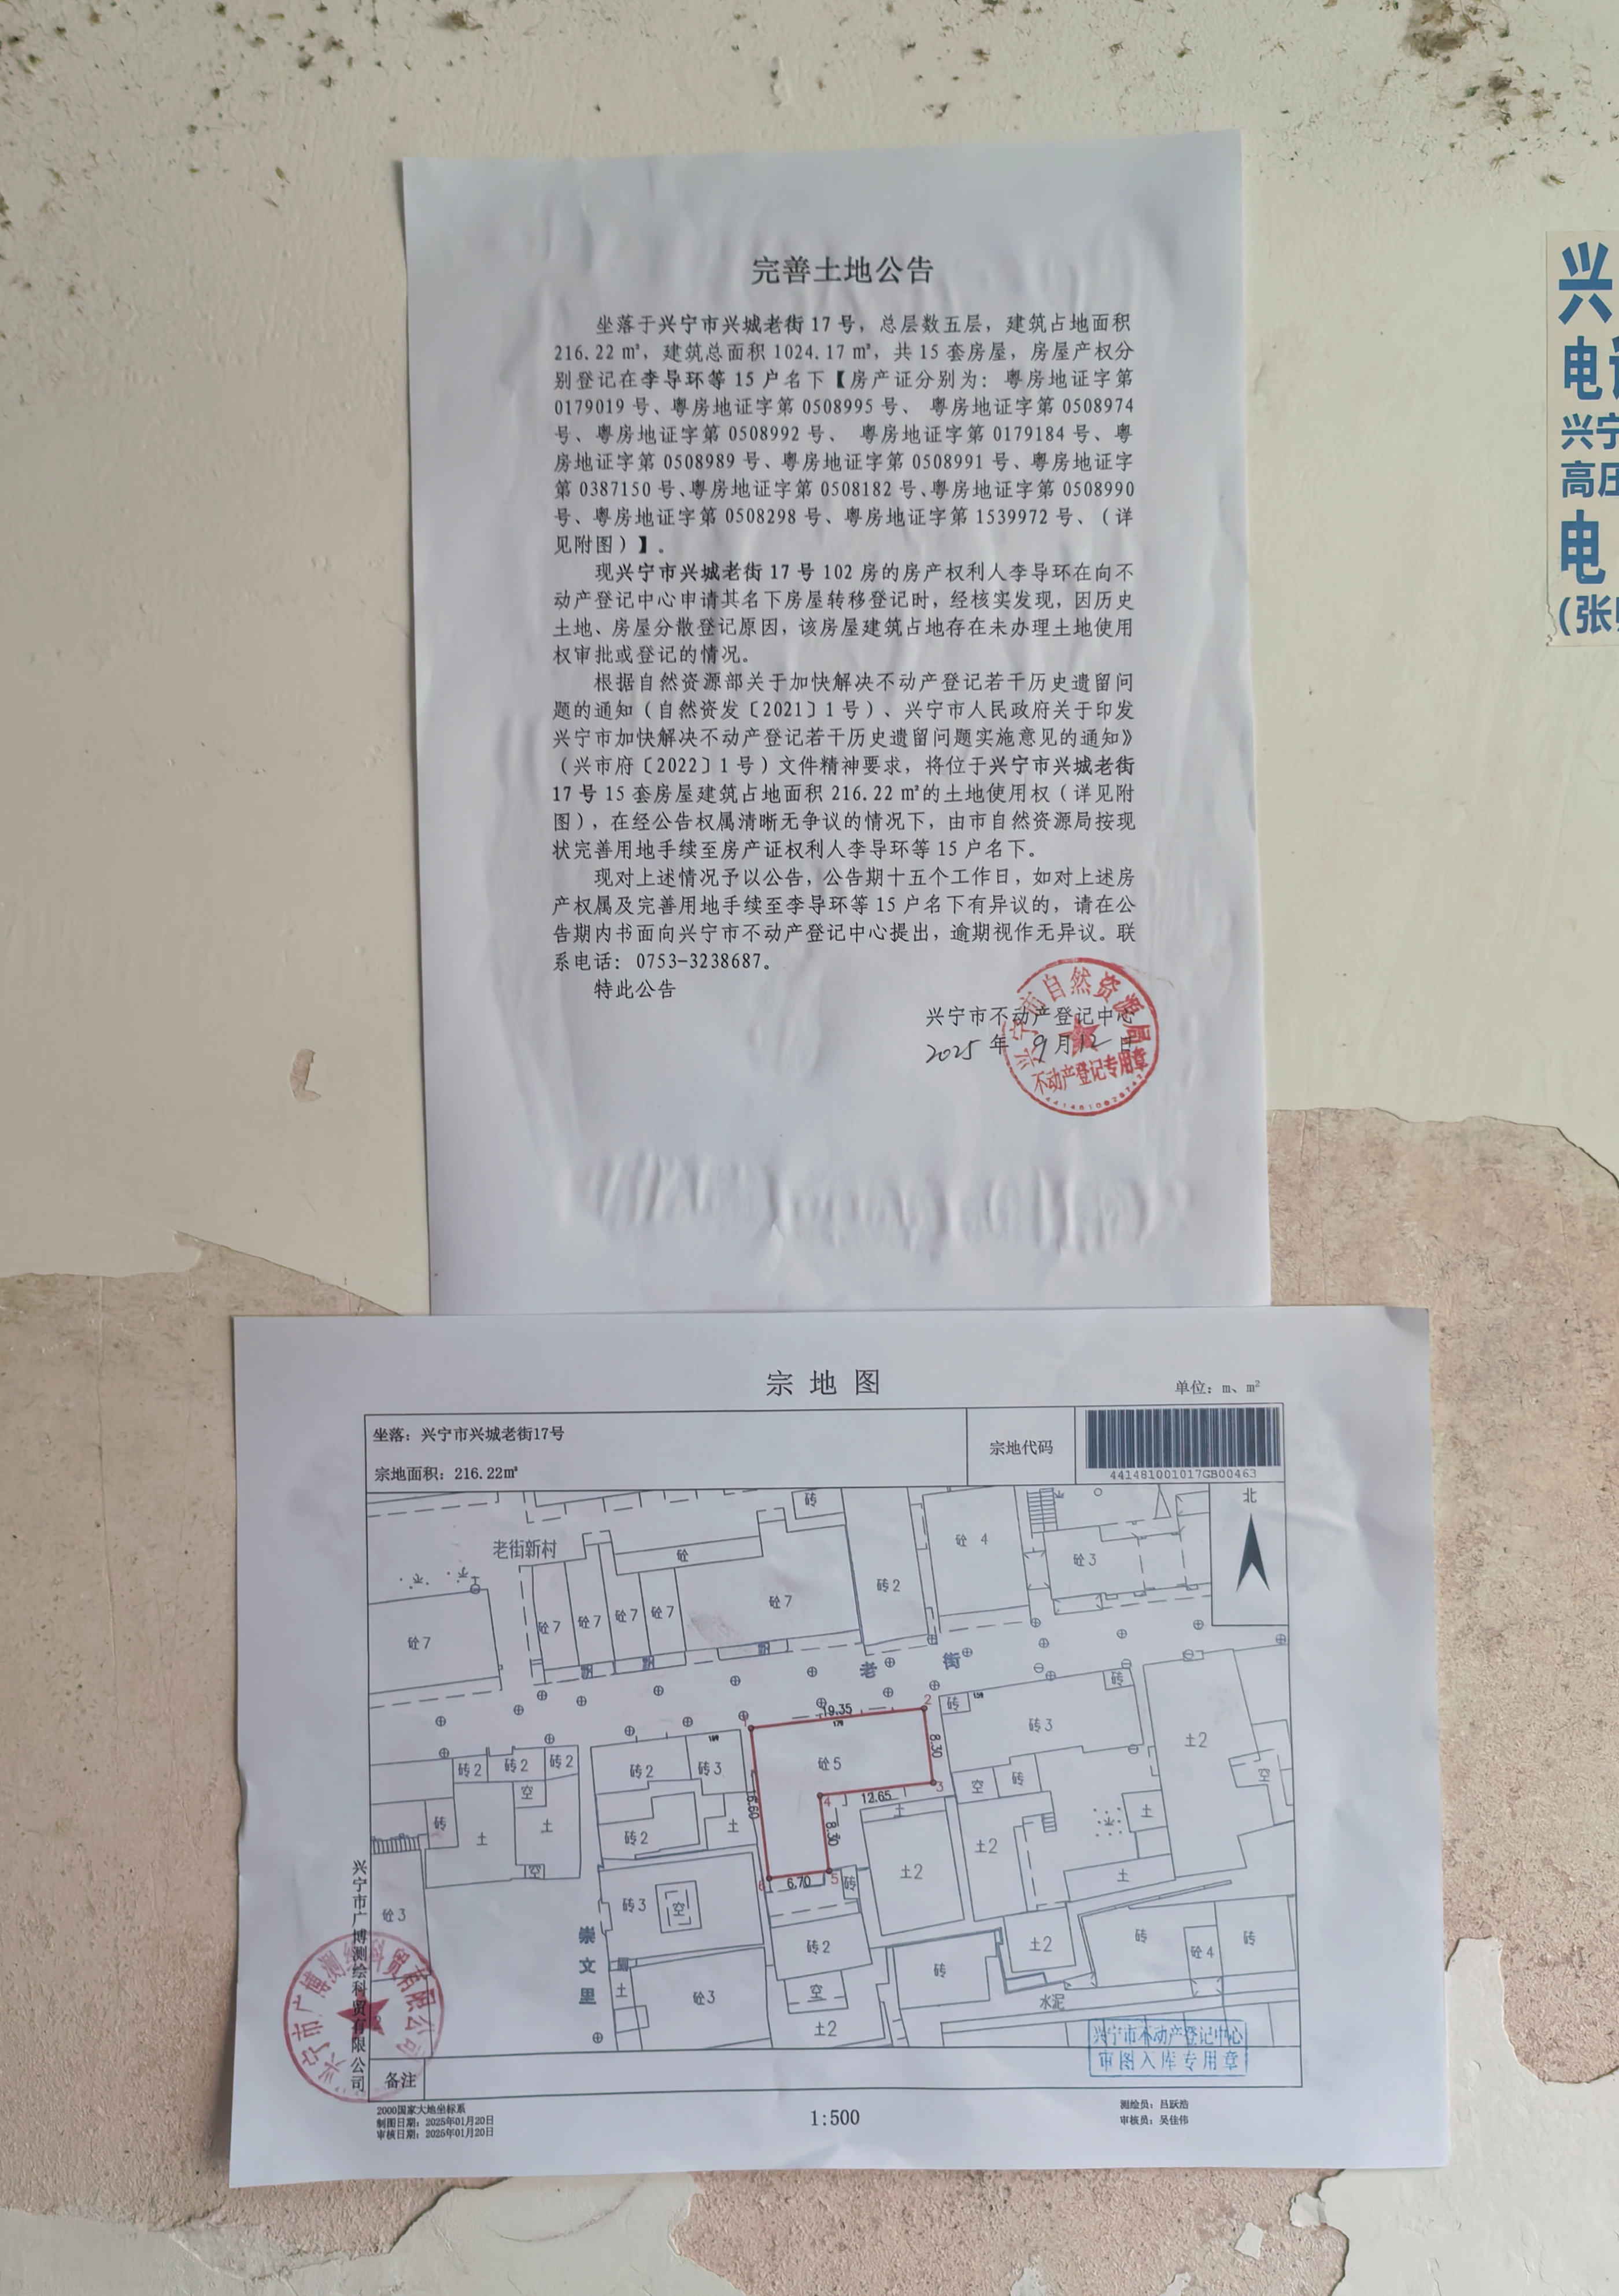 完善土地公告
坐落于兴宁市兴城老街 17 号，总层数五层，建筑占地面积
216.22 ㎡，建筑总面积 1024.17 ㎡，共 15 套房屋，房屋产权分
别登记在李导环等 15 户名下【房产证分别为：粤房地证字第
0179019 号、粤房地证字第 0508995 号、 粤房地证字第 0508974
号、粤房地证字第 0508992 号、 粤房地证字第 0179184 号、粤
房地证字第 0508989 号、粤房地证字第 0508991 号、粤房地证字
第 0387150 号、粤房地证字第 0508182 号、粤房地证字第 0508990
号、粤房地证字第 0508298 号、粤房地证字第 1539972 号、（详
见附图）】。
现兴宁市兴城老街 17 号 102 房的房产权利人李导环在向不
动产登记中心申请其名下房屋转移登记时，经核实发现，因历史
土地、房屋分散登记原因，该房屋建筑占地存在未办理土地使用
权审批或登记的情况。
根据自然资源部关于加快解决不动产登记若干历史遗留问
题的通知（自然资发〔2021〕1 号）、兴宁市人民政府关于印发
兴宁市加快解决不动产登记若干历史遗留问题实施意见的通知》
（兴市府〔2022〕1 号）文件精神要求，将位于兴宁市兴城老街
17 号 15 套房屋建筑占地面积 216.22 ㎡的土地使用权（详见附
图），在经公告权属清晰无争议的情况下，由市自然资源局按现
状完善用地手续至房产证权利人李导环等 15 户名下。
现对上述情况予以公告，公告期十五个工作日，如对上述房
产权属及完善用地手续至李导环等 15 户名下有异议的，请在公
告期内书面向兴宁市不动产登记中心提出，逾期视作无异议。联
系电话：0753-3238687。
特此公告
兴宁市不动产登记中心
2025 年 9 月 12 日
兴宁市自然资源局
不动产登记专用章
兴
电
兴宁
高压
电
(张
宗地图
单位：m、m²
坐落：兴宁市兴城老街17号
宗地面积：216.22㎡
宗地代码
441481001017GB00463
北
老街新村
砖
砼
砼 4
砼3
砖2
砼7
砼7
砼7
砼7
砼7
砼7
老街
1
19.35
2
砖
砖
砖3
土2
8.30
砼5
3
12.65
4
16.60
8.30
6
6.70
5
砖
砖2
砖2
砖2
空
砖2
砖3
砖
土
土
空
砖2
土
土
土2
空
砖
土2
土
土
空
砼3
砖3
空
砖2
空
土2
崇文里
土
砼3
砖
土2
砖
砼4
砖
水泥
兴宁市广博测绘科贸有限公司
兴宁市广博测绘科贸有限公司
兴宁市不动产登记中心
审图入库专用章
备注
2000国家大地坐标系
制图日期：2025年01月20日
审核日期：2025年01月20日
1:500
测绘员：吕跃浩
审核员：吴佳伟